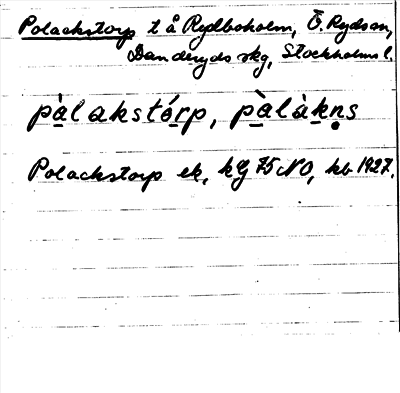 Polackstorp t å Rydboholm, Ö. Ryds sn,
Danderyds skg, Stockholms l.
pàlakstórp, pàlàkn̥s
Polackstorp ek, kg 75 NO, hb 1927.